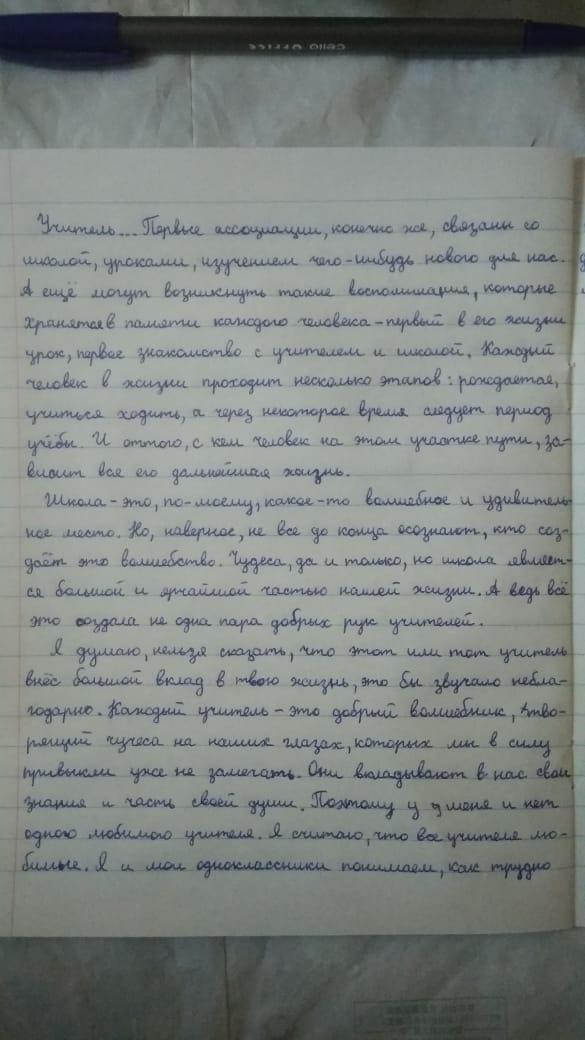 cello OFFICE
Учитель... Первые ассоциации, конечно же, связаны со
школой, уроками, изучением чего-нибудь нового для нас.
А ещё могут возникнуть такие воспоминания, которые
хранятся в памяти каждого человека - первый в его жизни
урок, первое знакомство с учителем и школой. Каждый
человек в жизни проходит несколько этапов: рождается,
учиться ходить, а через некоторое время следует период
учёбы. И оттого, с кем человек на этом участке пути, за-
висит вся его дальнейшая жизнь.
Школа - это, по-моему, какое-то волшебное и удивитель-
ное место. Но, наверное, не все до конца осознают, кто соз-
даёт это волшебство. Чудеса, да и только, но школа являет-
ся большой и ярчайшой частью нашей жизни. А ведь всё
это создала не одна пара добрых рук учителей.
Я думаю, нельзя сказать, что этот или тот учитель
внёс большой вклад в твою жизнь, это бы звучало небла-
годарно. Каждый учитель - это добрый волшебник, тво-
рящий чучеса на наших глазах, которых мы в силу
привыкли уже не замечать. Они вкладывают в нас свои
знания и часть своей души. Поэтому у меня и нет
одного любимого учителя. Я считаю, что все учителя лю-
бимые. Я и мои одноклассники понимаем, как трудно